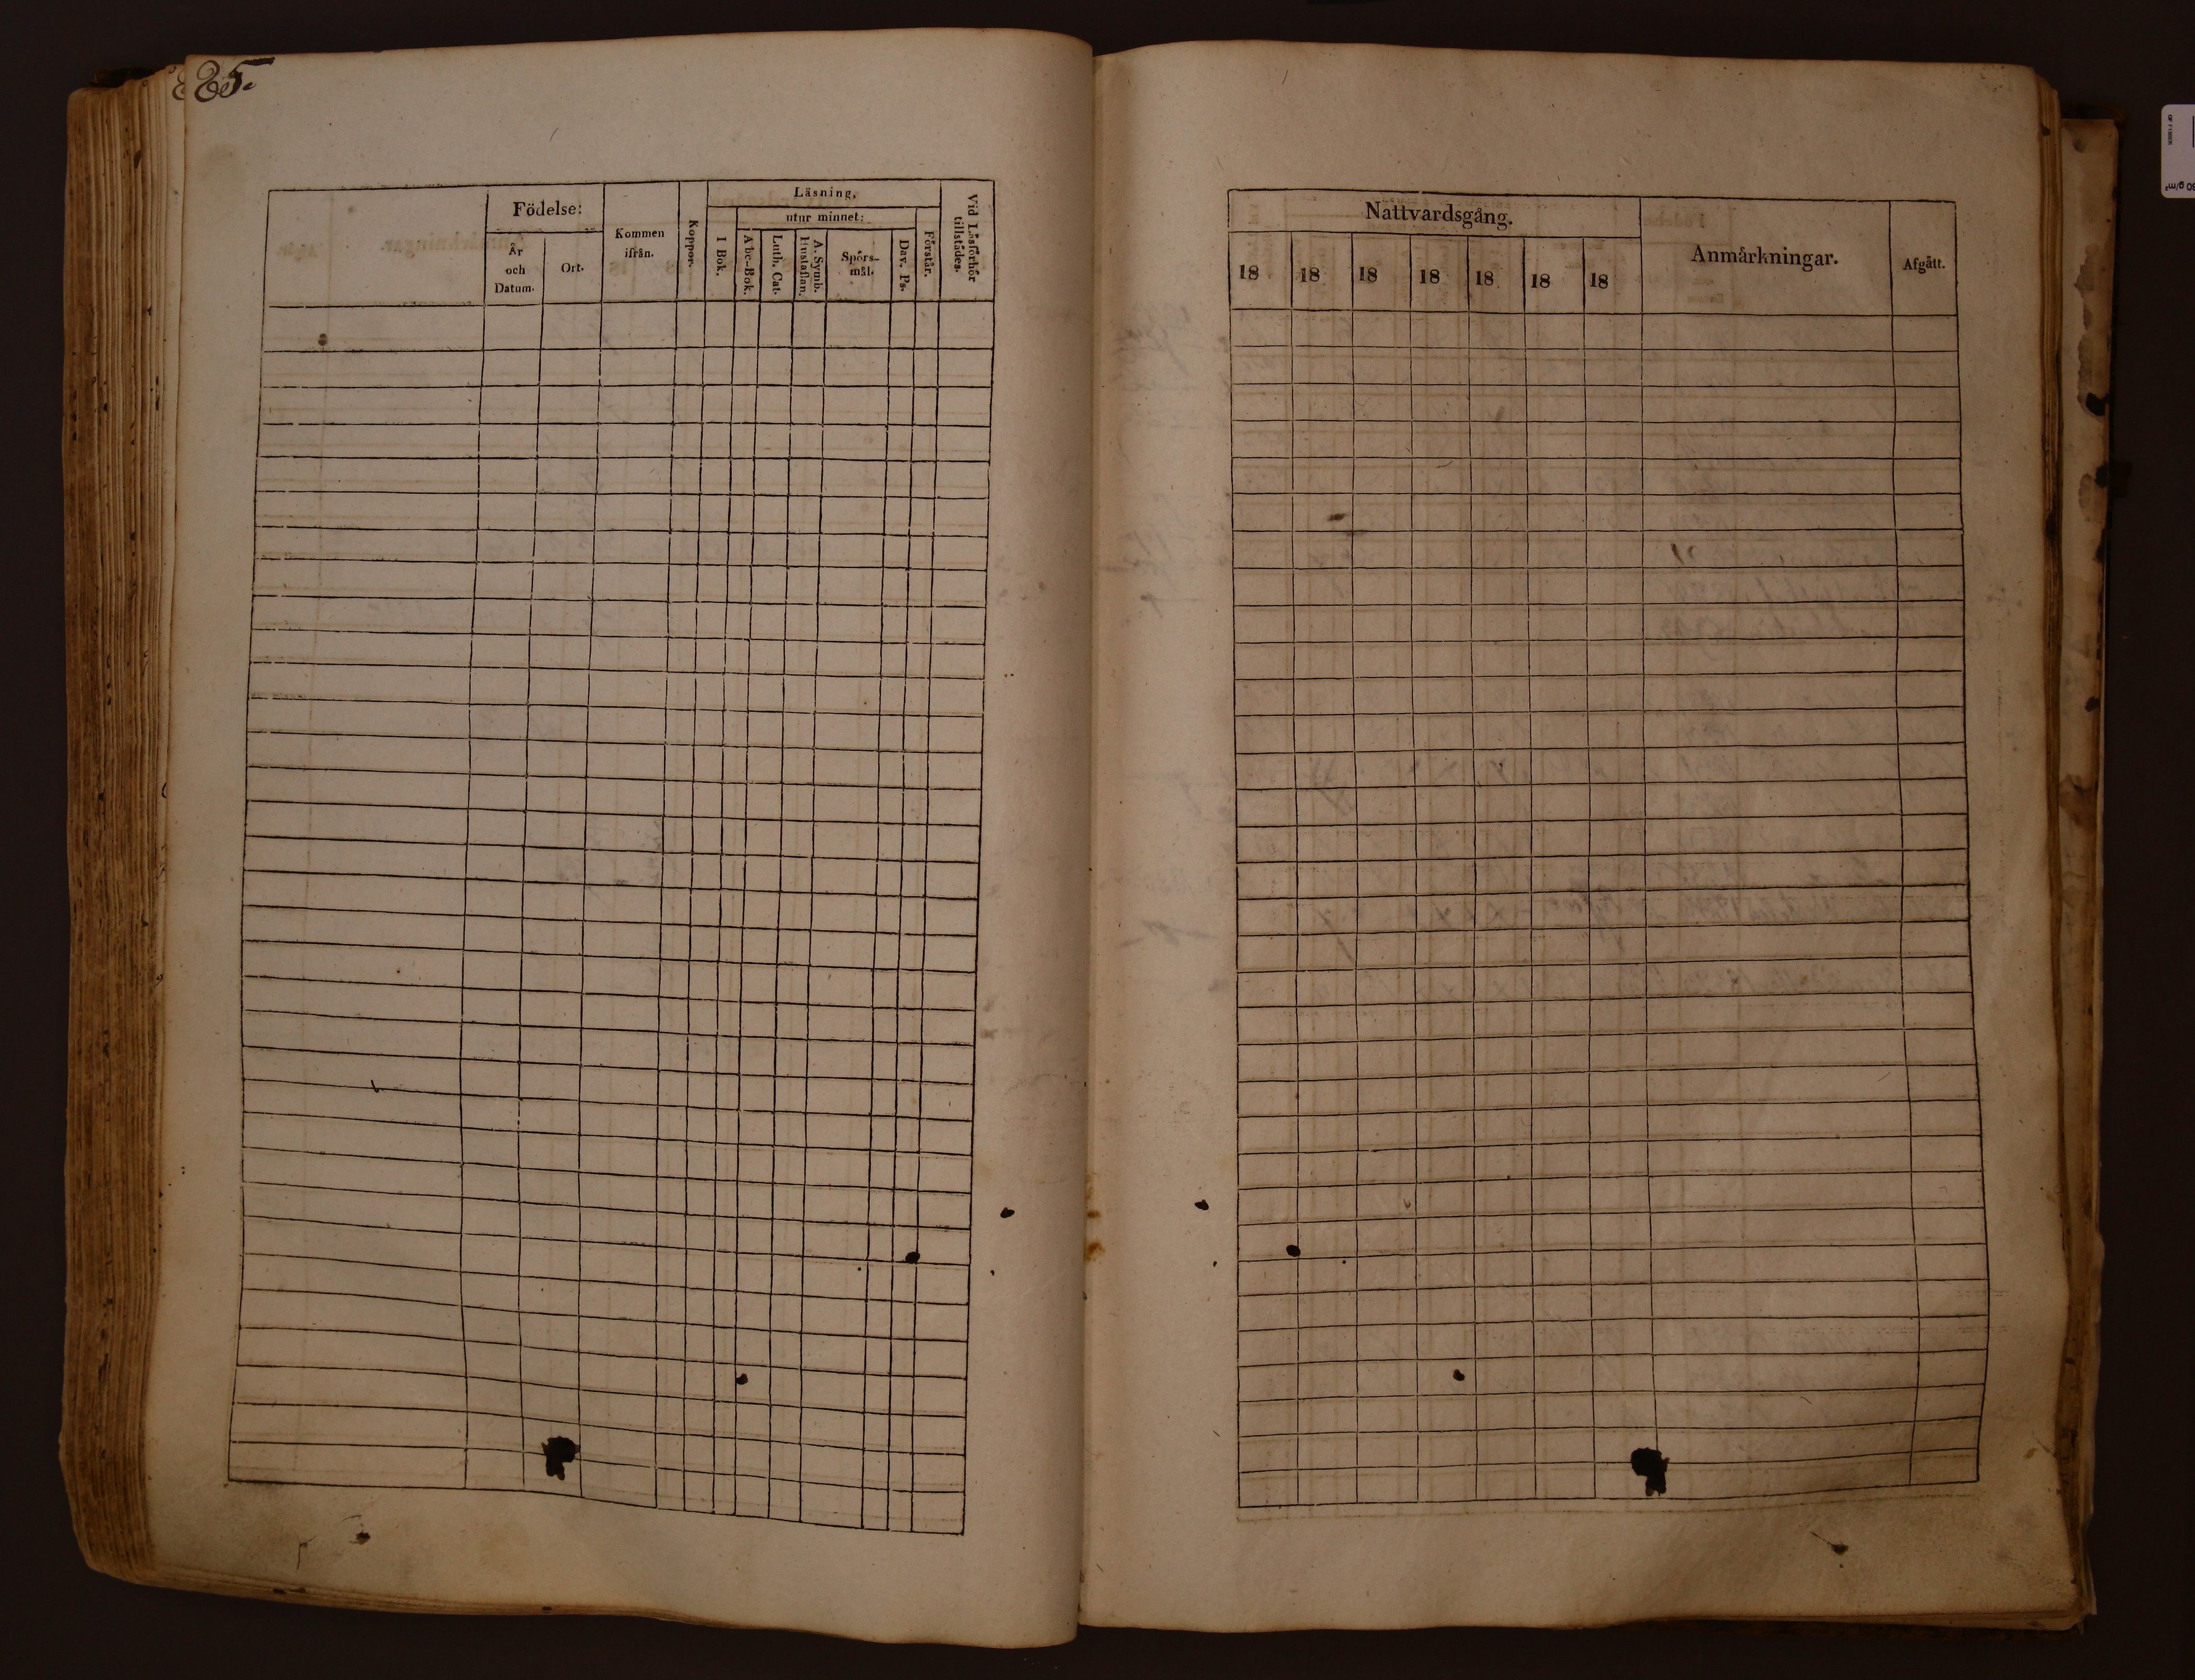 225.
Läsning,
Födelse:
utur minnet:
Kommen
ifrån.
Koppor.
I Bok.
Abc-Bok.
Luth. Cat.
A. Symb.
Hustaflan.
Spörs-
mål.
Dav. Ps.
Förstår.
Vid Läsförhör
tillstädes.
År
och
Datum.
Ort.
Nattvardsgång.
Anmärkningar.
Afgått.
18 18 18 18 18 18 18